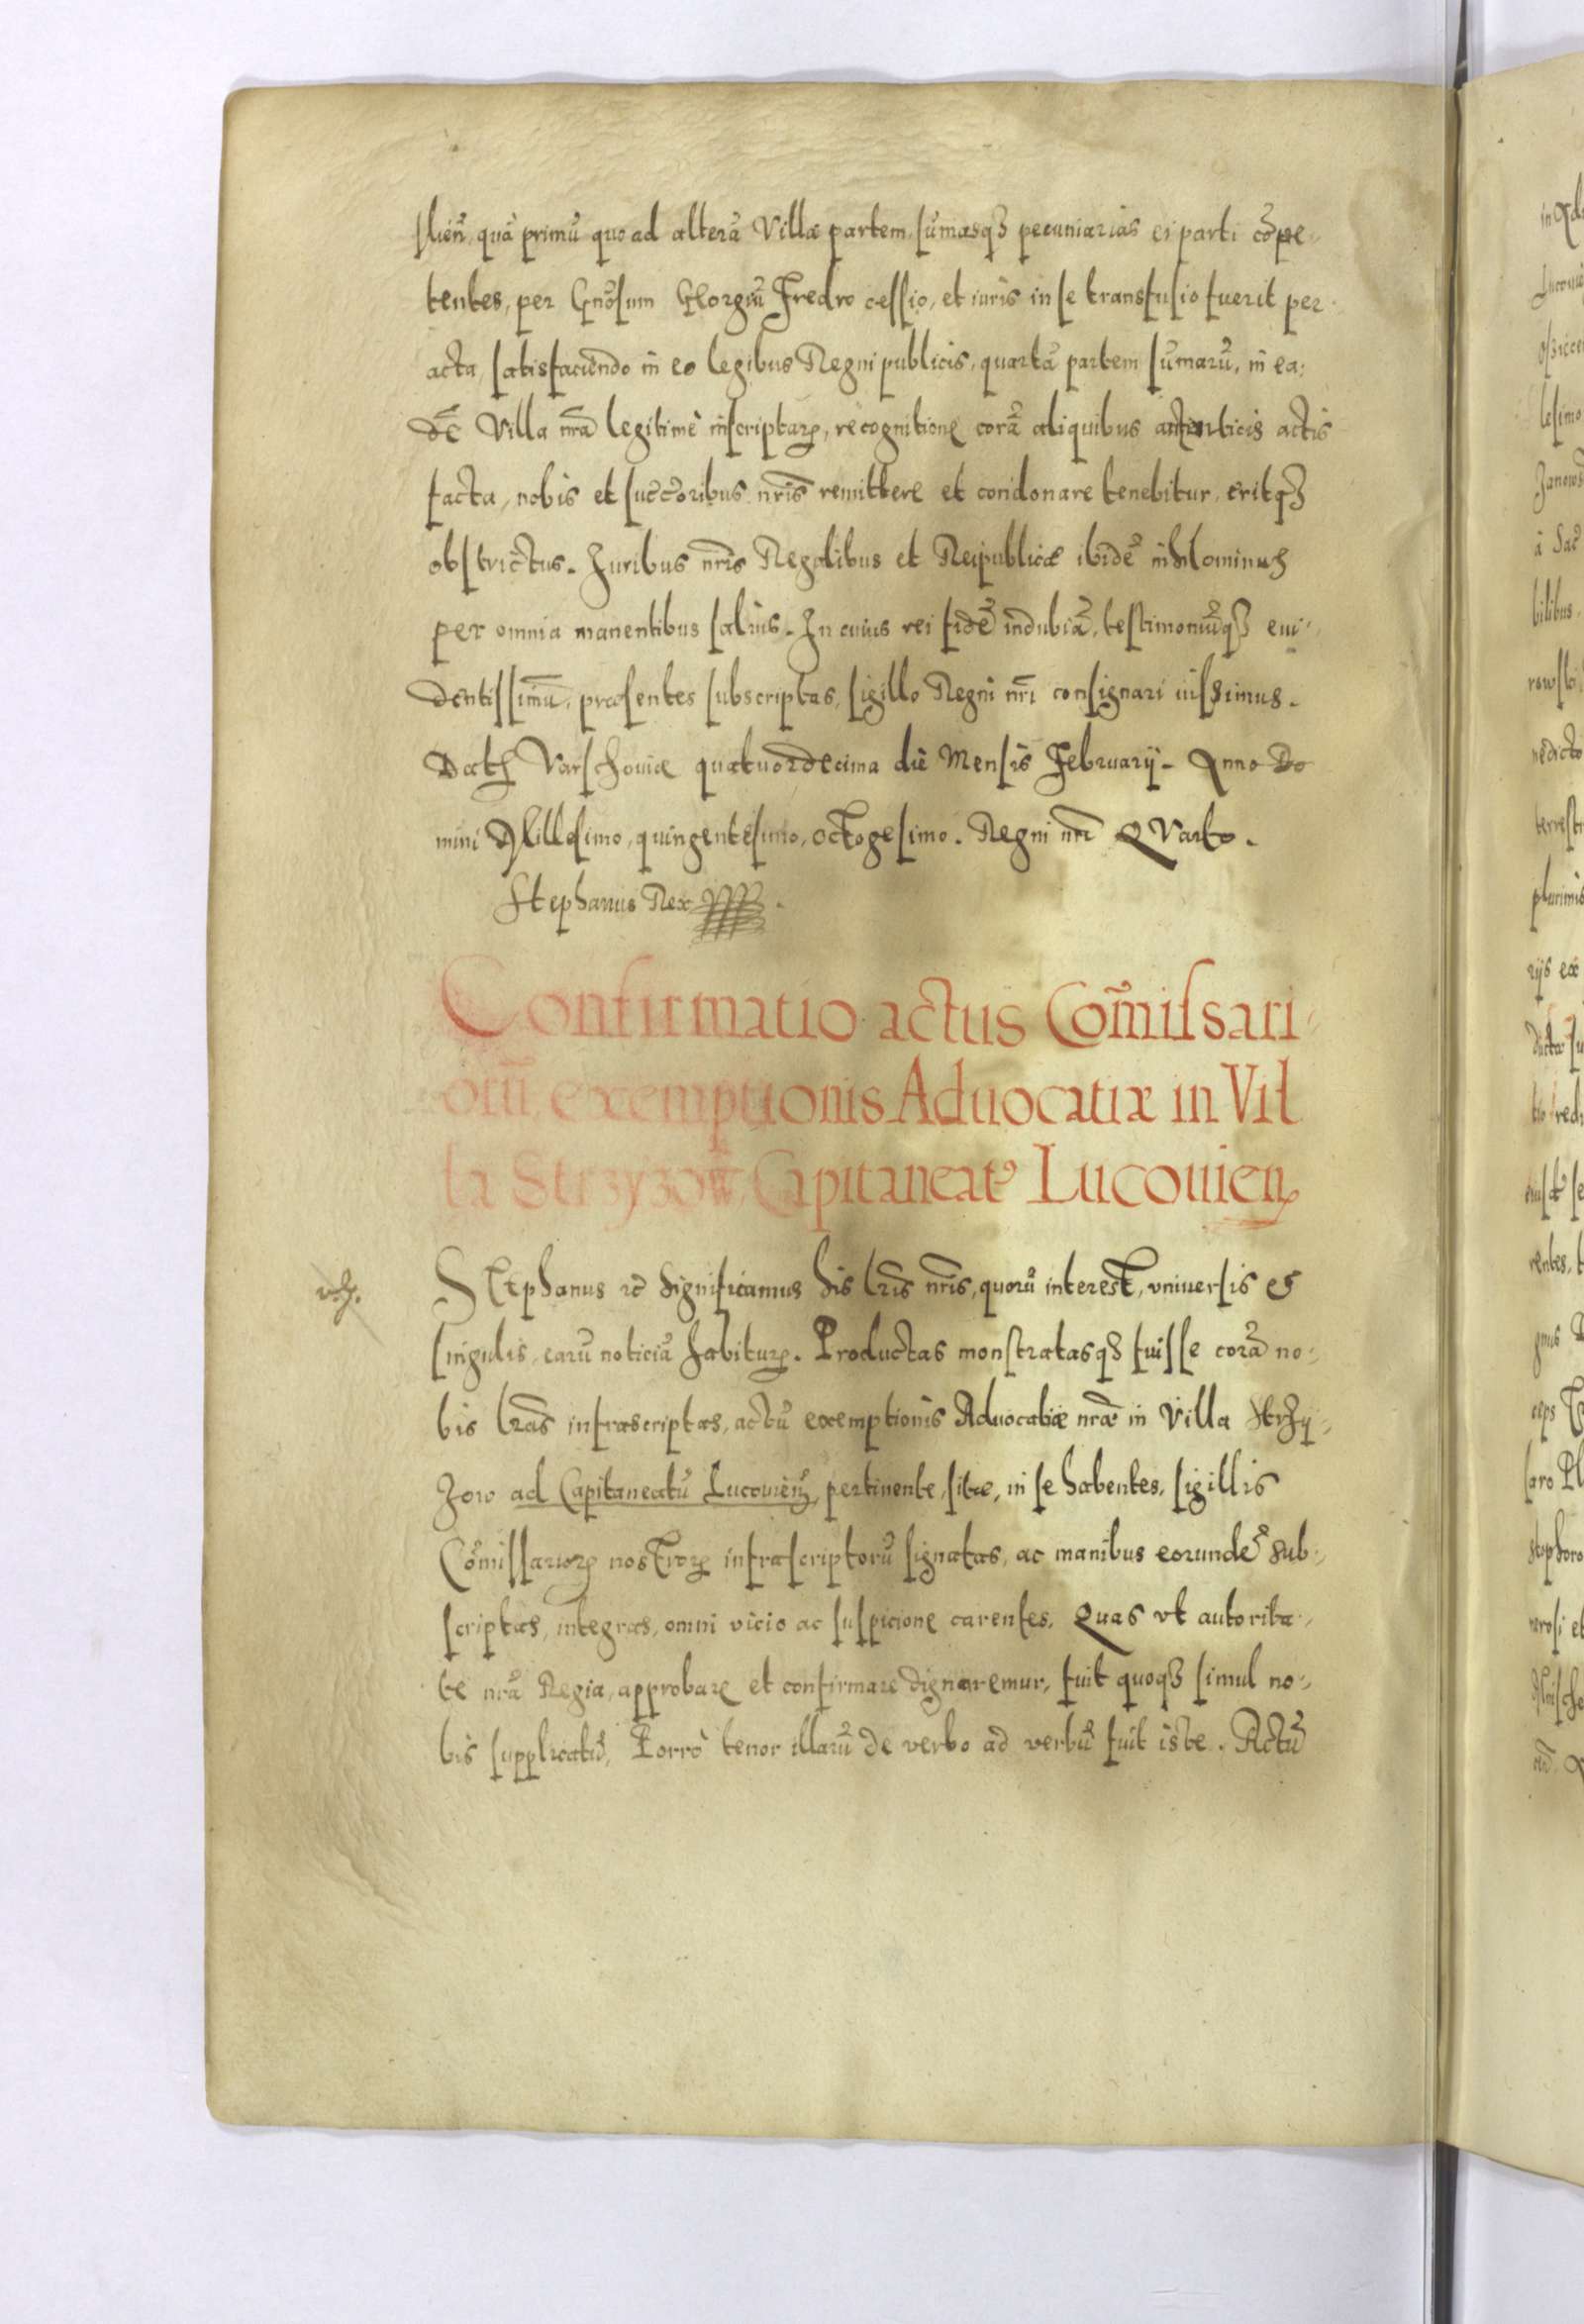 slień, quā primū quo ad alterā Villæ partem, sūmasqȝ pecuniarias ei parti cōpe-
tentes, per Gnōsum Georgiū Fredro cessio, et iuris in se transfusio fuerit per
acta, satisfaciendo in eo legibus Regni publicis, quartā partem sūmarū, in ea-
dē Villa nrā legitimè inscriptarꝝ, recognitione corā aliquibus autenticis actis
facta, nobis et succōribus nrīs remittere et condonare tenebitur, eritqȝ
obstrictus. Iuribus nrīs Regalibus et Reipublicæ ibidē nihilominus
per omnia manentibus saluis. In cuius rei fidē indubiā, testimoniūqȝ eui-
dentissimū, præsentes subscriptas, sigillo Regni nrī consignari iussimus.
Dat. Varschouiæ quatuordecima die Mensis Februarij. Anno Do
mini Millesimo, quingentesimo, octogesimo. Regni nrī QVarto.
Stephanus Rex
Confirmatio actus Com̄issari-
orū exemptionis Aduocatiæ in Vil
la Strzyzow Capitaneatꝰ Lucouien̄
STephanus ꝛc̄ Significamus his lrīs nrīs, quorū interest, vniuersis et
singulis, earū noticiā habiturꝝ. Productas monstratasqȝ fuisse corā no-
bis lrās infrascriptas, actū exemptionis Aduocatiæ nræ in Villa Strzy-
zow ad Capitaneatū Lucouień, pertinente, sitæ, in se habentes, sigillis
Cōmissariorꝝ nostrorꝝ infrascriptorū signatas, ac manibus eorundē sub-
scriptas, integras, omni vicio ac suspicione carentes. Quas vt autorita-
te nrā Regia, approbare et confirmare dignaremur, fuit quoqȝ simul no-
bis supplicatū, Porrò tenor illarū de verbo ad verbū fuit iste. Actū